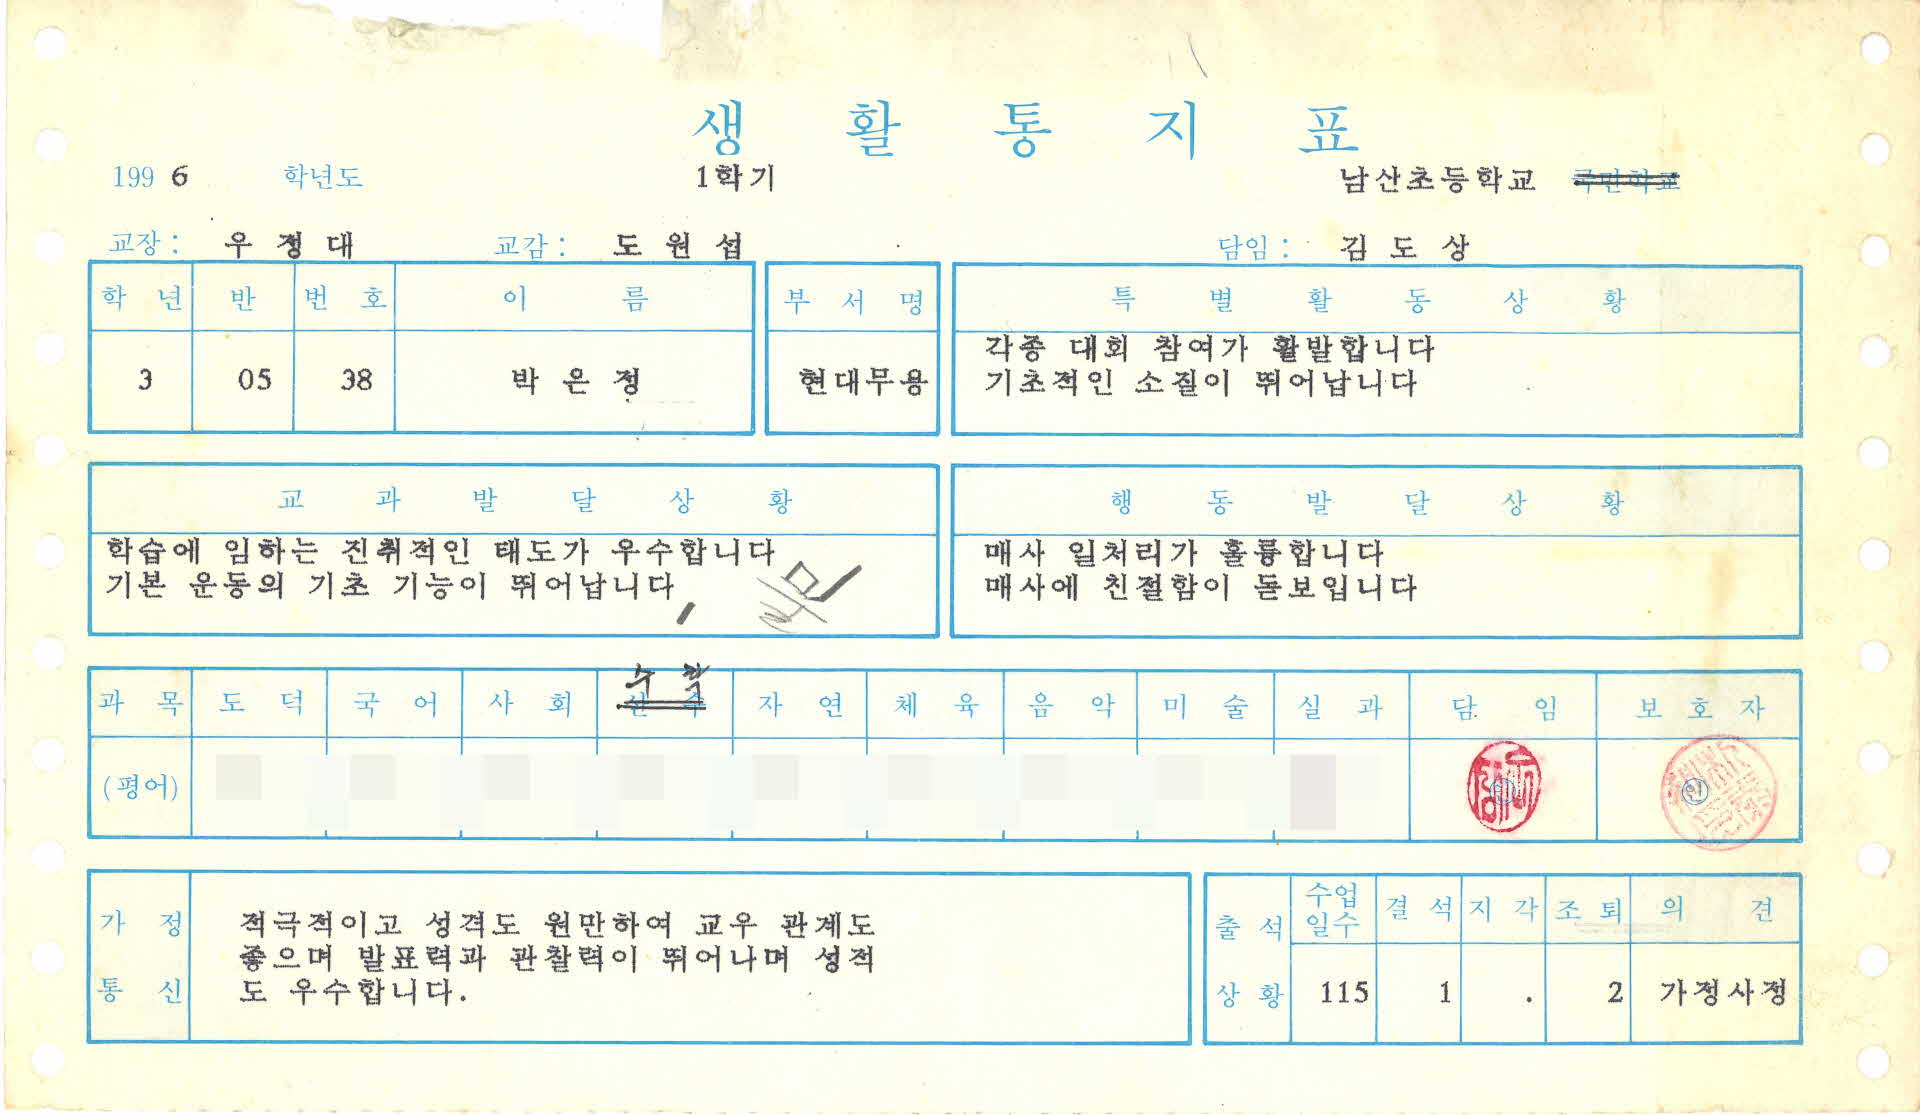 생 활 통 지 표
1996 학년도 1학기 남산초등학교 국민학교
교장 : 우 정 대 교감 : 도 원 섭 담임 : 김 도 상
학 년 반 번 호 이 름 부 서 명 특 별 활 동 상 황
3 05 38 박 은 정 현대무용
각종 대회 참여가 활발합니다
기초적인 소질이 뛰어납니다
교 과 발 달 상 황
학습에 임하는 진취적인 태도가 우수합니다
기본 운동의 기초 기능이 뛰어납니다
행 동 발 달 상 황
매사 일처리가 훌륭합니다
매사에 친절함이 돋보입니다
수 학
과 목 도 덕 국 어 사 회 산 수 자 연 체 육 음 악 미 술 실 과 담 임 보 호 자
(평어) 인 인
가 정 통 신
적극적이고 성격도 원만하여 교우 관계도
좋으며 발표력과 관찰력이 뛰어나며 성적
도 우수합니다.
출 석 상 황
수업 일수 결 석 지 각 조 퇴 의 견
115 1 . 2 가정사정